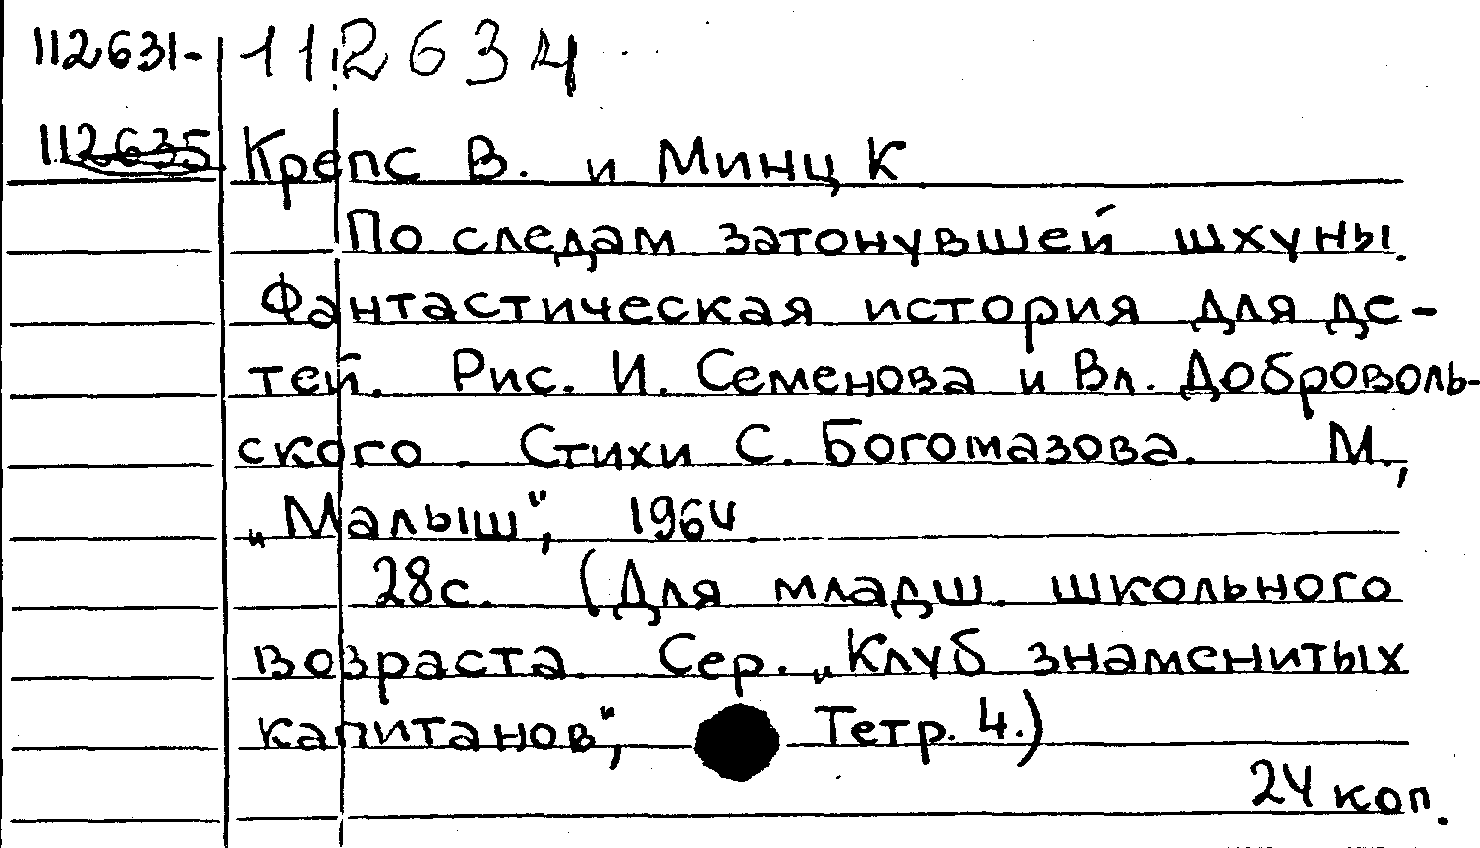 112631- 112634
112635 Крепс В. и Минц К
По следам затонувшей шхуны.
Фантастическая история для де-
тей. Рис. И. Семенова и Вл. Доброволь-
ского. Стихи С. Богомазова. М.,
„Малыш", 1964
28с. (Для младш. школьного
возраста. Сер. „Клуб знаменитых
капитанов", Тетр. 4.)
24 коп.